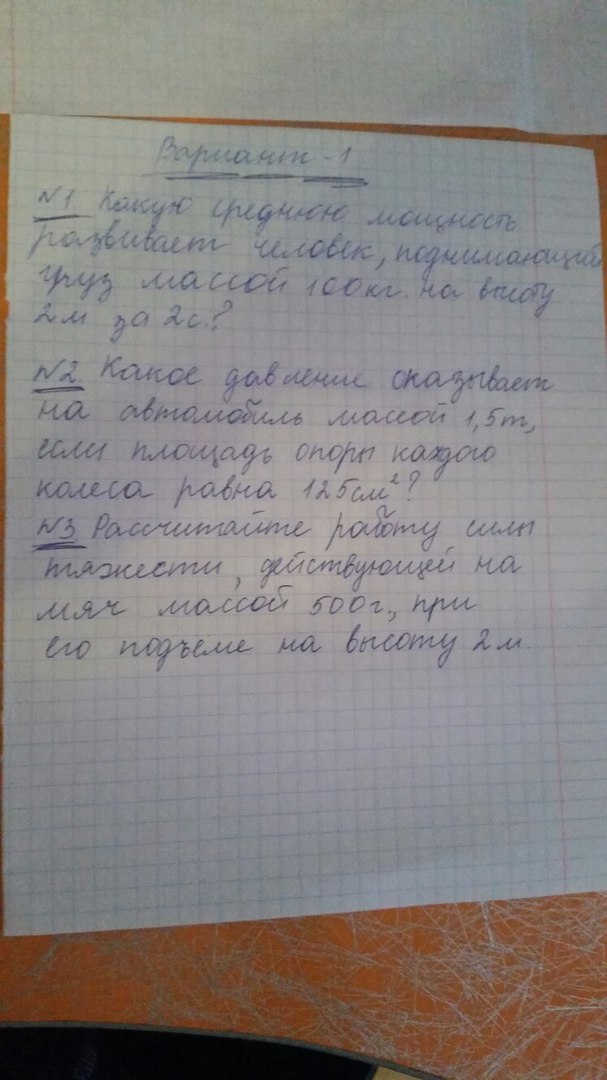 Вариант-1
№1 Какую среднюю мощность
развивает человек, поднимающий
груз массой 100кг. на высоту
2м за 2с.?
№2 Какое давление оказывает
на автомобиль массой 1,5т,
если площадь опоры каждого
колеса равна 125см²?
№3 Рассчитайте работу силы
тяжести, действующей на
мяч массой 500г., при
его подъеме на высоту 2м.